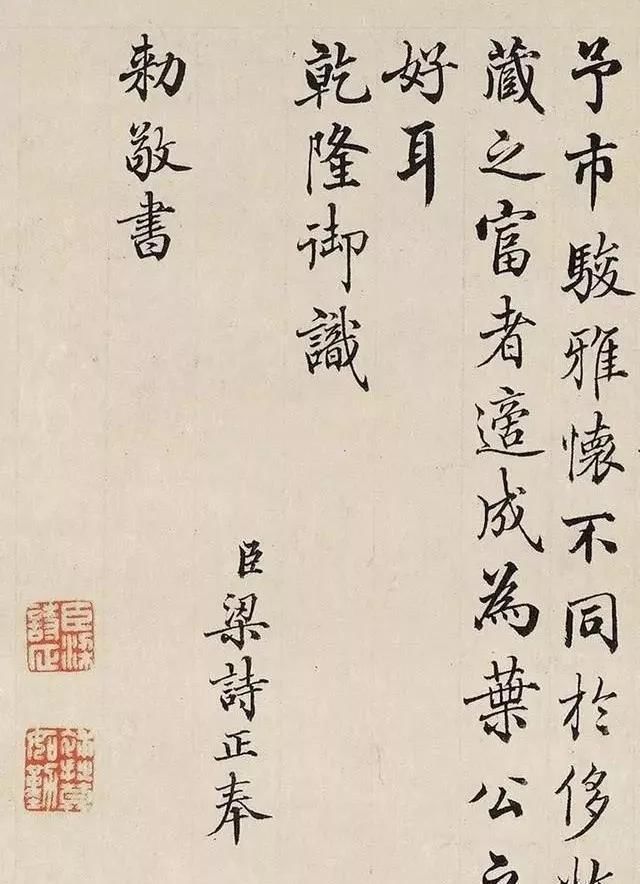 予市駿雅懷不同於侈
藏之富者適成為葉公
好耳
乾隆御識
臣梁詩正奉
勅敬書
臣梁詩正